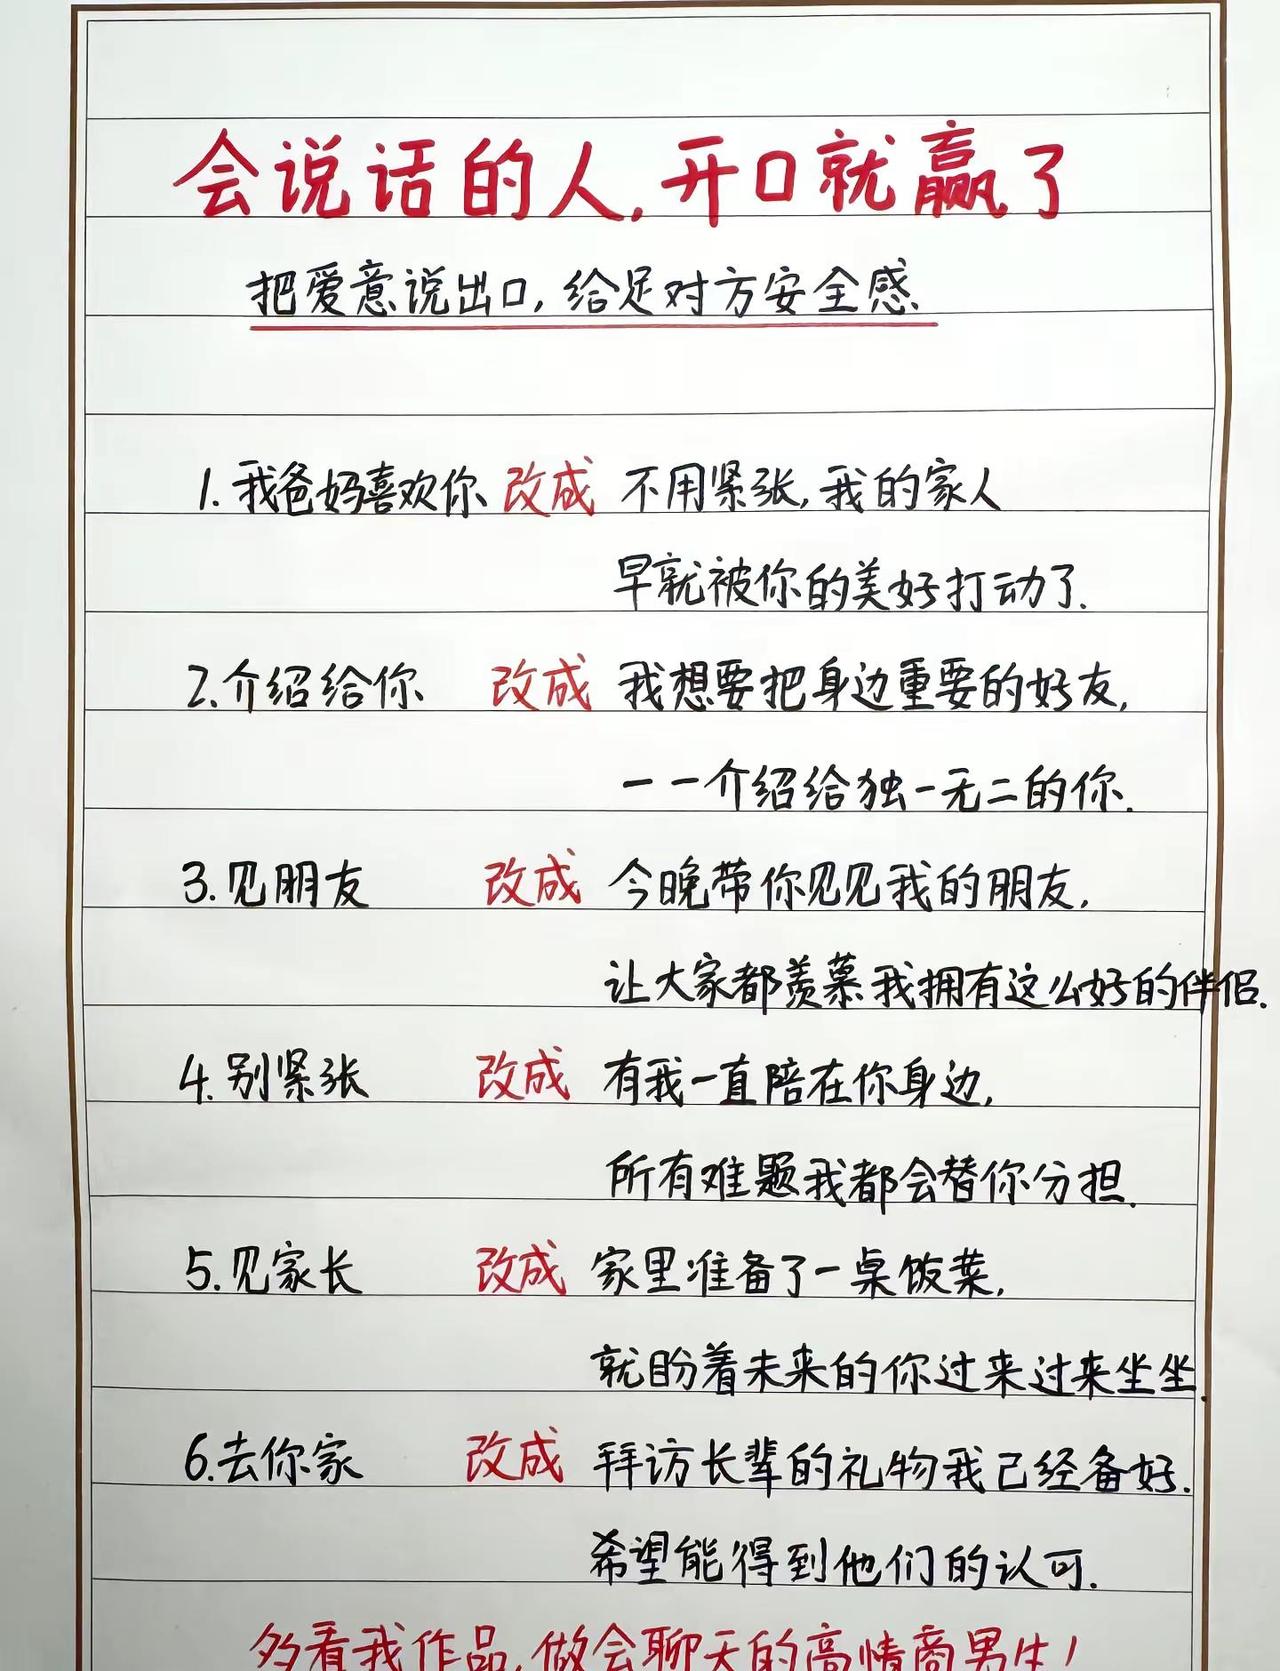 会说话的人,开口就赢了
把爱意说出口,给足对方安全感.
1.我爸妈喜欢你 改成 不用紧张,我的家人
早就被你的美好打动了.
2.介绍给你 改成 我想要把身边重要的好友,
一一介绍给独一无二的你.
3.见朋友 改成 今晚带你见见我的朋友,
让大家都羡慕我拥有这么好的伴侣.
4.别紧张 改成 有我一直陪在你身边,
所有难题我都会替你分担.
5.见家长 改成 家里准备了一桌饭菜,
就盼着未来的你过来过来坐坐.
6.去你家 改成 拜访长辈的礼物我已经备好.
希望能得到他们的认可.
多看我作品,做会聊天的高情商男生!